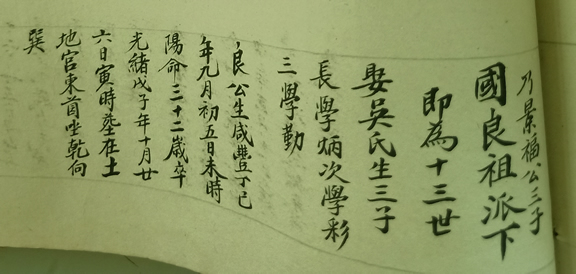 乃景福公三子
國良祖派下
即為十三世
娶吳氏生三子
長學炳次學彩
三學勤
良公生咸豐丁巳
年九月初五日未時
陽命三十二歲卒
光緒戊子年十月廿
六日寅時塟在土
地宮東首坐乾向
巽